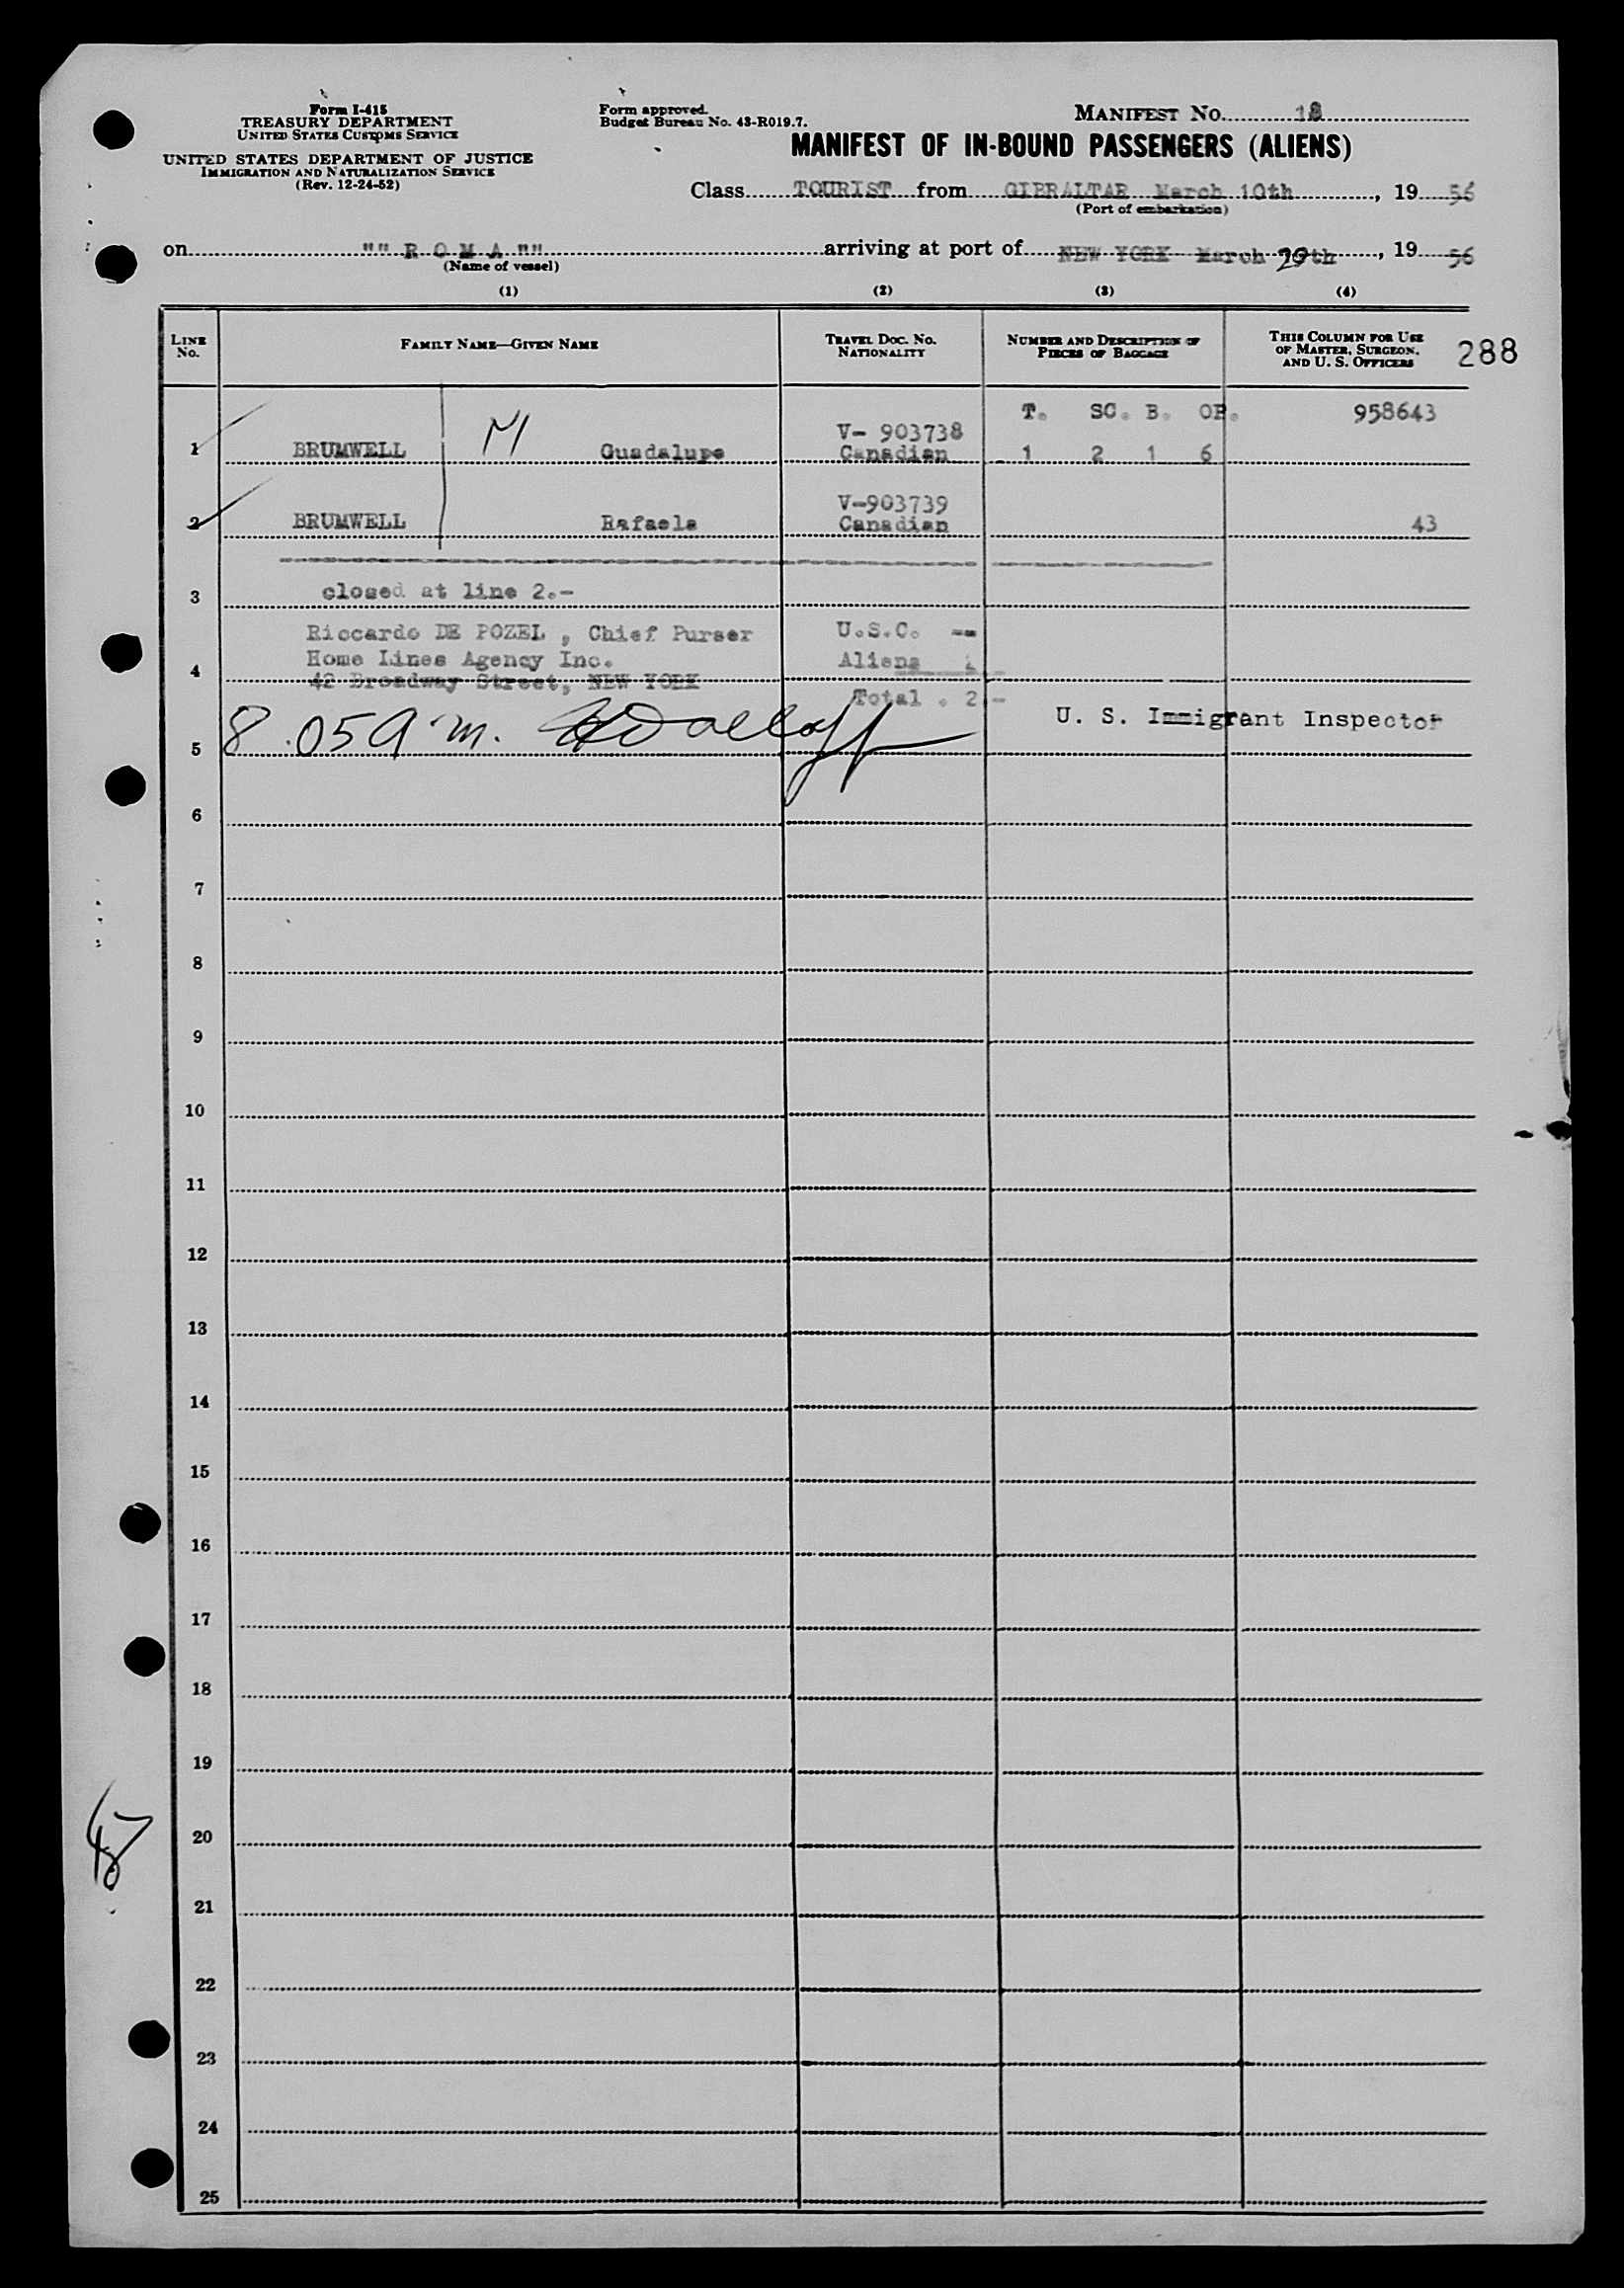 Form I-415
TREASURY DEPARTMENT
UNITED STATES CUSTOMS SERVICE
UNITED STATES DEPARTMENT OF JUSTICE
IMMIGRATION AND NATURALIZATION SERVICE
(Rev. 12-24-52)
Form approved.
Budget Bureau No. 43-R019.7.
MANIFEST NO.
MANIFEST OF IN-BOUND PASSENGERS (ALIENS)
Class TOURIST from GIBRALTAR March 10th, 19 56
(Port of embarkation)
on "" R O M A "" arriving at port of NEW YORK March 29th, 19 56
(Name of vessel)
(1) (2) (3) (4)
LINE No. FAMILY NAME—GIVEN NAME TRAVEL DOC. NO. NATIONALITY NUMBER AND DESCRIPTION OF PIECES OF BAGGAGE THIS COLUMN FOR USE OF MASTER, SURGEON, AND U. S. OFFICERS 288
T. SC. B. OP. 958643
V- 903738
1 BRUMWELL M Guadalupe Canadian 1 2 1 6
V-903739
2 BRUMWELL Rafaela Canadian 43
3 closed at line 2.-
Riccardo DE POZEL , Chief Purser U.S.C. --
4 Home Lines Agency Inc. Aliens
42 Broadway Street, NEW YORK
Total . 2.-
8.05 a.m. U. S. Immigrant Inspector
5
6
7
8
9
10
11
12
13
14
15
16
17
18
19
20
21
22
23
24
25